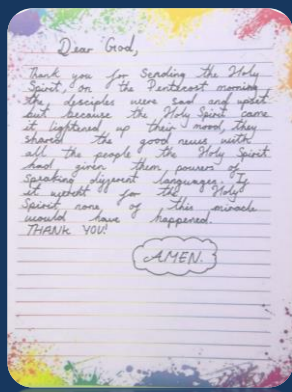 Dear God,
Thank you for sending the Holy
Spirit, on the Pentecost morning
the disciples were sad and upset
but because the Holy Spirit came
it lightened up their mood, they
shared the good news with
all the people the Holy Spirit
had given them powers of
speaking different languages If
it wasn't for the Holy
Spirit none of this miracle
would have happened.
THANK YOU!
AMEN.